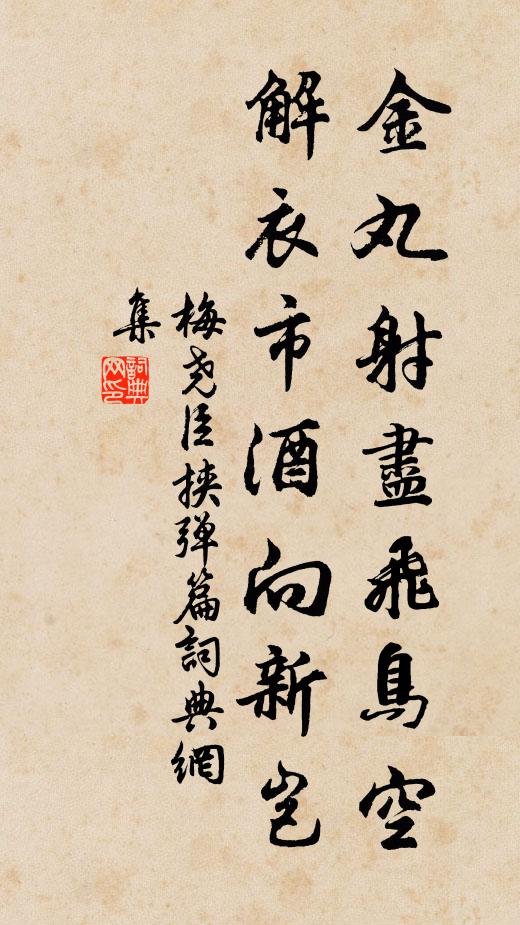 金丸射盡飛鳥空
解衣市酒向新岂
梅尧臣挾弹篇詞典網
集
詞典
网印